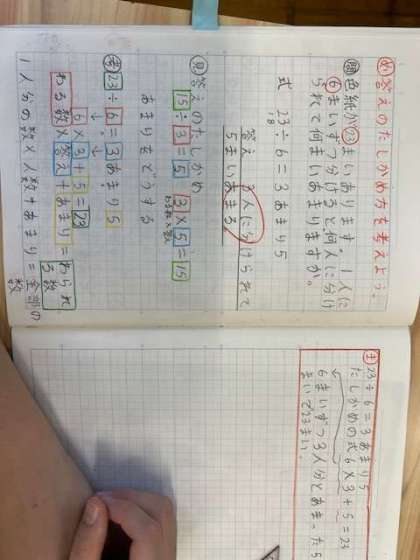 め 答えのたしかめ方を考えよう。
問 色紙が23まいあります。1人に
6まいずつ分けると何人に分け
られて何まいあまりますか。
式 23÷6=3あまり5
18
答え 3人に分けられて
5まいあまる
見 答えのたしかめ
15÷3=5 3×5=15
あまりをどうする
考 23÷6=3あまり5
6×3+5=23
わる数×答え+あまり=わられる数
1人分の数×人数+あまり=全部の数
ま 23÷6=3あまり5
たしかめの式 6×3+5=23
6まいずつ3人分とあまった5
まいで23まい。